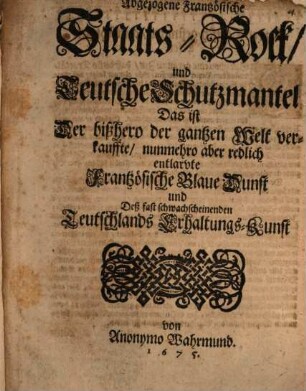 Abgezogene Frantzösische
Staats-Rock/
und
Teutsche Schutzmantel
Das ist
Der bißhero der gantzen Welt ver-
kauffte/ nunmehro aber redlich
entlarvte
Frantzösische Blaue Dunst
und
Deß fast schwachscheinenden
Teutschlands Erhaltungs-Kunst
von
Anonymo Wahrmund.
1675.